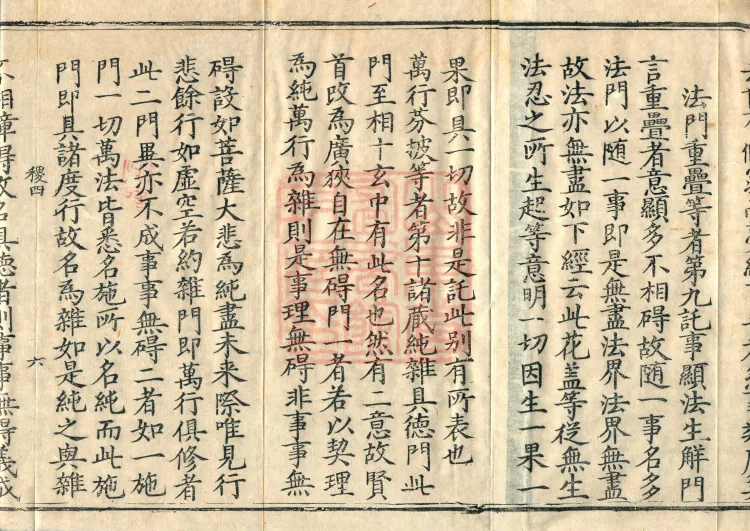 法門重疊等者第九託事顯法生解門
言重疊者意顯多不相碍故随一事名多
法門以随一事即是無盡法界法界無盡
故法亦無盡如下經云此花盖等從無生
法忍之所生起等意明一切因生一果一
果即具一切故非是託此别有所表也
萬行芬披等者第十諸蔵純雜具德門此
門至相十玄中有此名也然有二意故賢
首改為廣狹自在無碍門一者若以契理
為純萬行為雜則是事理無碍非事事無
碍設如菩薩大悲為純盡未来際唯見行
悲餘行如虛空若約雜門即萬行俱修者
此二門異亦不成事事無碍二者如一施
門一切萬法皆悉名施所以名純而此施
門即具諸度行故名為雜如是純之與雜
稷四 六
不相障碍故名具德者則事事無碍義成